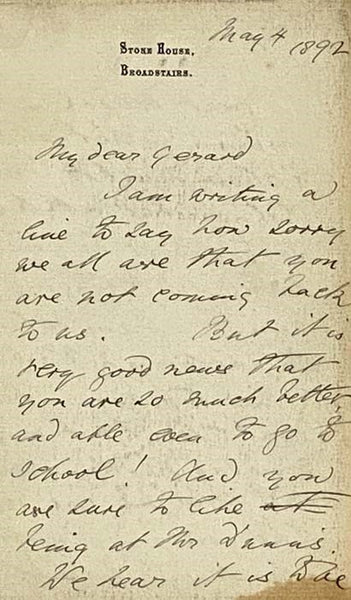 May 4 1892
STONE HOUSE,
BROADSTAIRS.
My dear Gerard
I am writing a
line to say how sorry
we all are that you
are not coming back
to us. But it is
very good news that
you are so much better,
and able even to go to
school! And you
are sure to like at
being at Mr Dunn's.
We hear it is to be